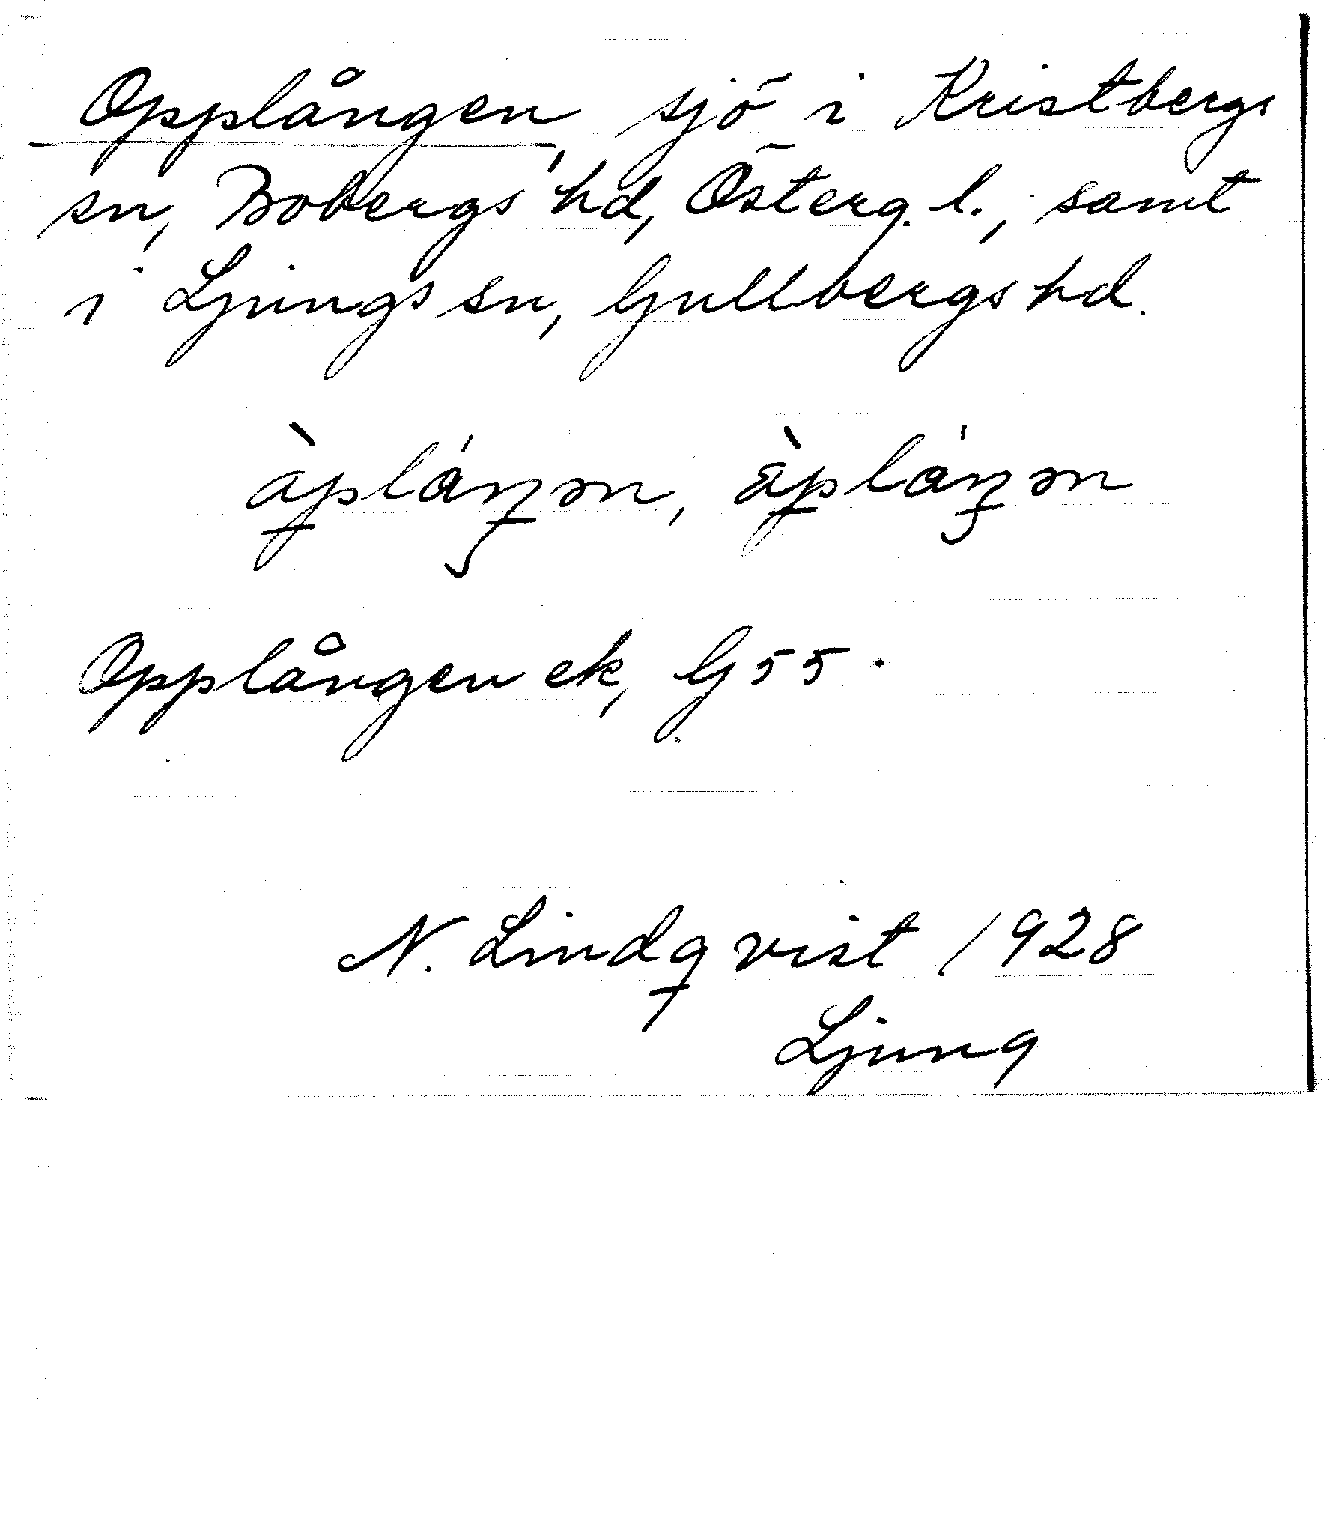 Opplången, sjö i Kristbergs
sn, Bobergs hd, Österg. l., samt
i Ljungs sn, Gullbergs hd.
Opplången ek, G 55.
N. Lindqvist 1928
Ljung